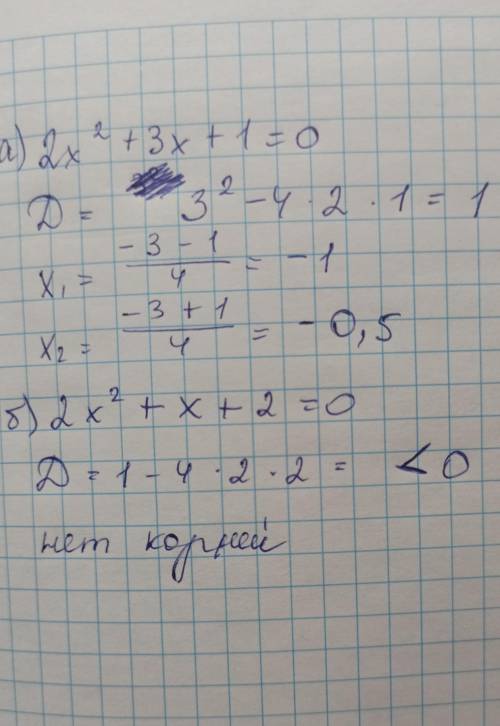 а) 2x² + 3x + 1 = 0
Д = 3² - 4 · 2 · 1 = 1
x₁ = (-3 - 1)/4 = -1
x₂ = (-3 + 1)/4 = -0,5
б) 2x² + x + 2 = 0
Д = 1 - 4 · 2 · 2 = < 0
нет корней